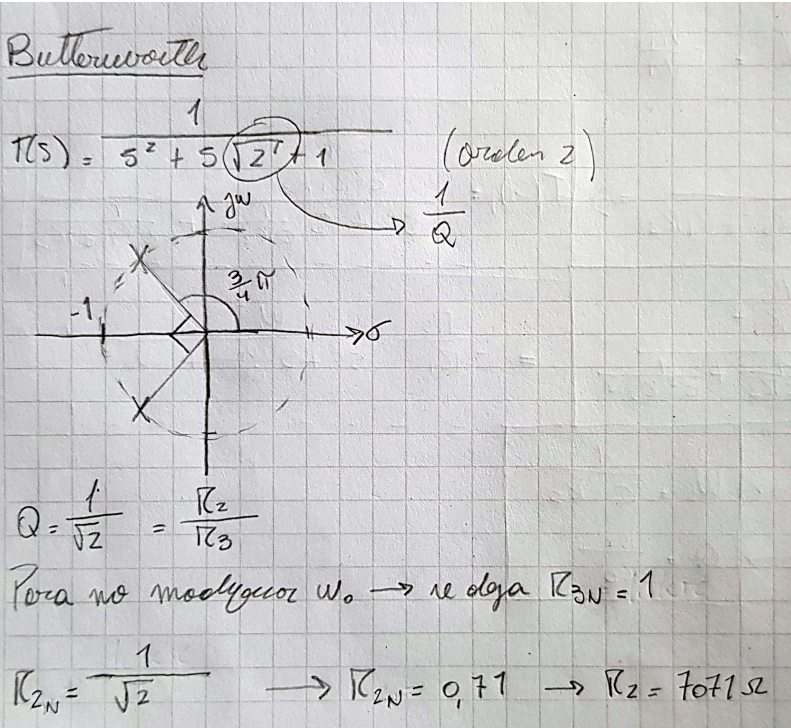 Butterworth
T(s) = 1 / (s² + s √2 + 1) (orden 2)
1/Q
jω
3/4 π
-1
σ
Q = 1/√2 = R₂/R₃
Para no modificar ω₀ → se deja R₃N = 1
R₂N = 1/√2 → R₂N = 0,71 → R₂ = 7071 Ω